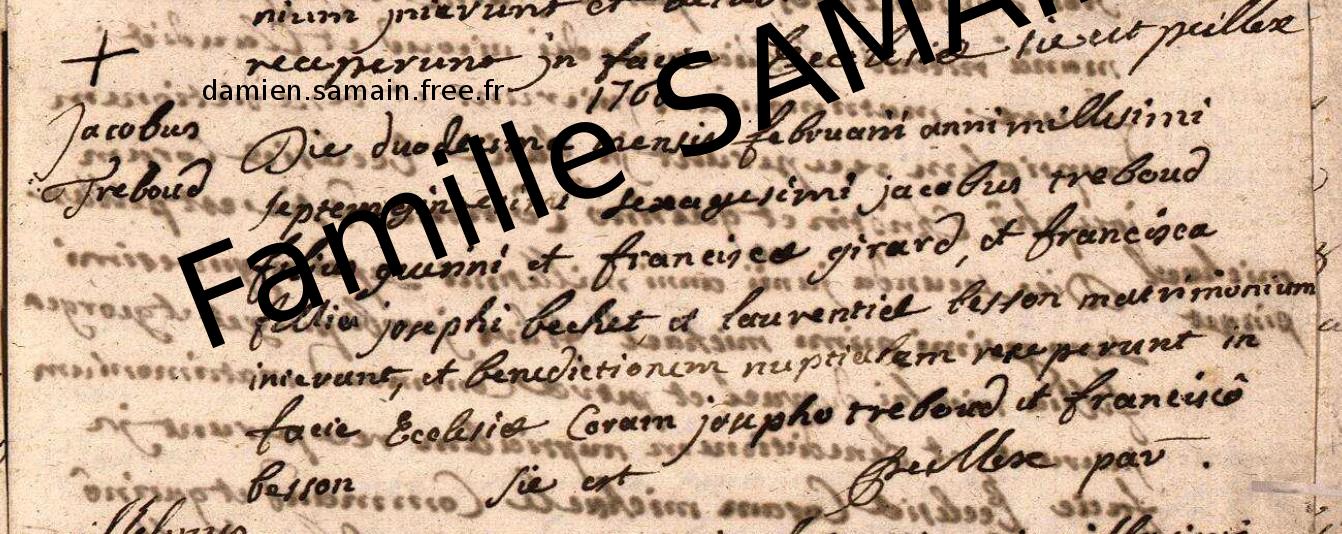 nium inierunt et
receperunt in facie Ecclesiæ sic est peillex
damien.samain.free.fr
Famille SAMAIN
176
Jacobus
Treboud
Die duodecima mensis februarii anni millesimi
septemgintesimi sexagesimi jacobus treboud
filius guerini et franciscæ girard, et francisca
fillia josephi bechet et laurentiæ besson matrimonium
inierunt, et benedictionem nuptialem receperunt in
facie Ecclesiæ Coram josepho treboud et franciscô
besson sic est peillex par .